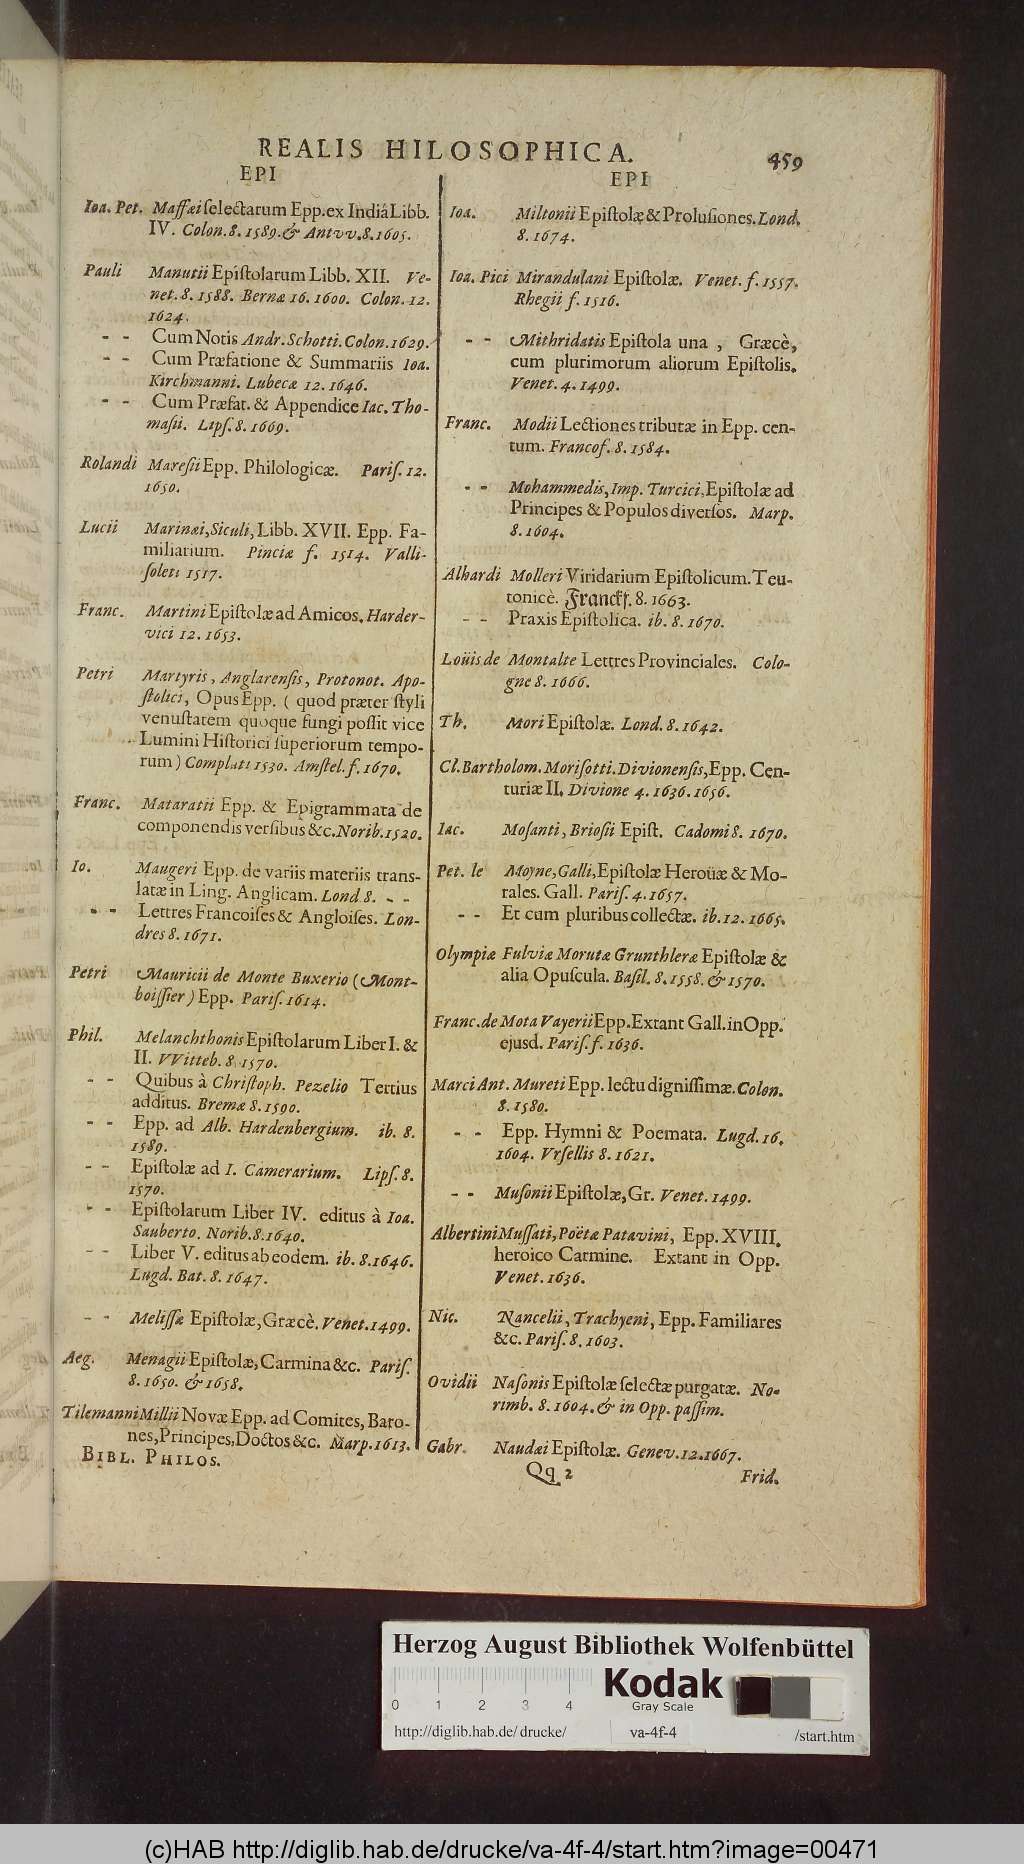 REALIS HILOSOPHICA. 459
EPI
Ioa. Pet. Maffæi ſelectarum Epp. ex Indiâ Libb.
IV. Colon. 8. 1589. & Antvv. 8. 1605.
Pauli Manutii Epiſtolarum Libb. XII. Ve-
net. 8. 1588. Bernæ 16. 1600. Colon. 12.
1624.
- - Cum Notis Andr. Schotti. Colon. 1629.
- - Cum Præfatione & Summariis Ioa.
Kirchmanni. Lubecæ 12. 1646.
- - Cum Præfat. & Appendice Iac. Tho-
maſii. Lipſ. 8. 1669.
Rolandi Mareſii Epp. Philologicæ. Pariſ. 12.
1650.
Lucii Marinæi, Siculi, Libb. XVII. Epp. Fa-
miliarium. Pinciæ f. 1514. Valli-
ſoleti 1517.
Franc. Martini Epiſtolæ ad Amicos. Harder-
vici 12. 1653.
Petri Martyris, Anglarenſis, Protonot. Apo-
ſtolici, Opus Epp. ( quod præter ſtyli
venuſtatem quoque fungi poſſit vice
Lumini Hiſtorici ſuperiorum tempo-
rum ) Complati 1530. Amſtel. f. 1670.
Franc. Mataratii Epp. & Epigrammata de
componendis verſibus &c. Norib. 1520.
Io. Maugeri Epp. de variis materiis trans-
latæ in Ling. Anglicam. Lond 8. - -
- - Lettres Francoiſes & Angloiſes. Lon-
dres 8. 1671.
Petri Mauricii de Monte Buxerio (Mont-
boiſſier ) Epp. Pariſ. 1614.
Phil. Melanchthonis Epiſtolarum Liber I. &
II. VVitteb. 8. 1570.
- - Quibus à Chriſtoph. Pezelio Tertius
additus. Bremæ 8. 1590.
- - Epp. ad Alb. Hardenbergium. ib. 8.
1589.
- - Epiſtolæ ad I. Camerarium. Lipſ. 8.
1570.
- - Epiſtolarum Liber IV. editus à Ioa.
Sauberto. Norib. 8. 1640.
- - Liber V. editus ab eodem. ib. 8. 1646.
Lugd. Bat. 8. 1647.
- - Meliſſæ Epiſtolæ, Græcè. Venet. 1499.
Aeg. Menagii Epiſtolæ, Carmina &c. Pariſ.
8. 1650. & 1658.
Tilemanni Millii Novæ Epp. ad Comites, Baro-
nes, Principes, Doctos &c. Marp. 1613.
BIBL. PHILOS.
EPI
Ioa. Miltonii Epiſtolæ & Proluſiones. Lond.
8. 1674.
Ioa. Pici Mirandulani Epiſtolæ. Venet. f. 1557.
Rhegii f. 1516.
- - Mithridatis Epiſtola una , Græcè,
cum plurimorum aliorum Epiſtolis.
Venet. 4. 1499.
Franc. Modii Lectiones tributæ in Epp. cen-
tum. Francof. 8. 1584.
- - Mohammedis, Imp. Turcici, Epiſtolæ ad
Principes & Populos diverſos. Marp.
8. 1604.
Alhardi Molleri Viridarium Epiſtolicum. Teu-
tonicè. Franckf. 8. 1663.
- - Praxis Epiſtolica. ib. 8. 1670.
Loüis de Montalte Lettres Provinciales. Colo-
gne 8. 1666.
Th. Mori Epiſtolæ. Lond. 8. 1642.
Cl. Bartholom. Moriſotti. Divionenſis, Epp. Cen-
turiæ II. Divione 4. 1636. 1656.
Iac. Moſanti, Brioſii Epiſt. Cadomi 8. 1670.
Pet. le Moyne, Galli, Epiſtolæ Heroüæ & Mo-
rales. Gall. Pariſ. 4. 1657.
- - Et cum pluribus collectæ. ib. 12. 1665.
Olympiæ Fulviæ Moratæ Grunthleræ Epiſtolæ &
alia Opuſcula. Baſil. 8. 1558. & 1570.
Franc. de Mota Vayerii Epp. Extant Gall. in Opp.
ejusd. Pariſ. f. 1636.
Marci Ant. Mureti Epp. lectu digniſſimæ. Colon.
8. 1580.
- - Epp. Hymni & Poemata. Lugd. 16.
1604. Vrſellis 8. 1621.
- - Muſonii Epiſtolæ, Gr. Venet. 1499.
Albertini Muſſati, Poëtæ Patavini, Epp. XVIII.
heroico Carmine. Extant in Opp.
Venet. 1636.
Nic. Nancelii, Trachyeni, Epp. Familiares
&c. Pariſ. 8. 1603.
Ovidii Naſonis Epiſtolæ ſelectæ purgatæ. No-
rimb. 8. 1604. & in Opp. paſſim.
Gabr. Naudæi Epiſtolæ. Genev. 12. 1667.
Qq 2 Frid.
Herzog August Bibliothek Wolfenbüttel
0 1 2 3 4
Kodak
Gray Scale
http://diglib.hab.de/ drucke/ va-4f-4 /start.htm
(c)HAB http://diglib.hab.de/drucke/va-4f-4/start.htm?image=00471